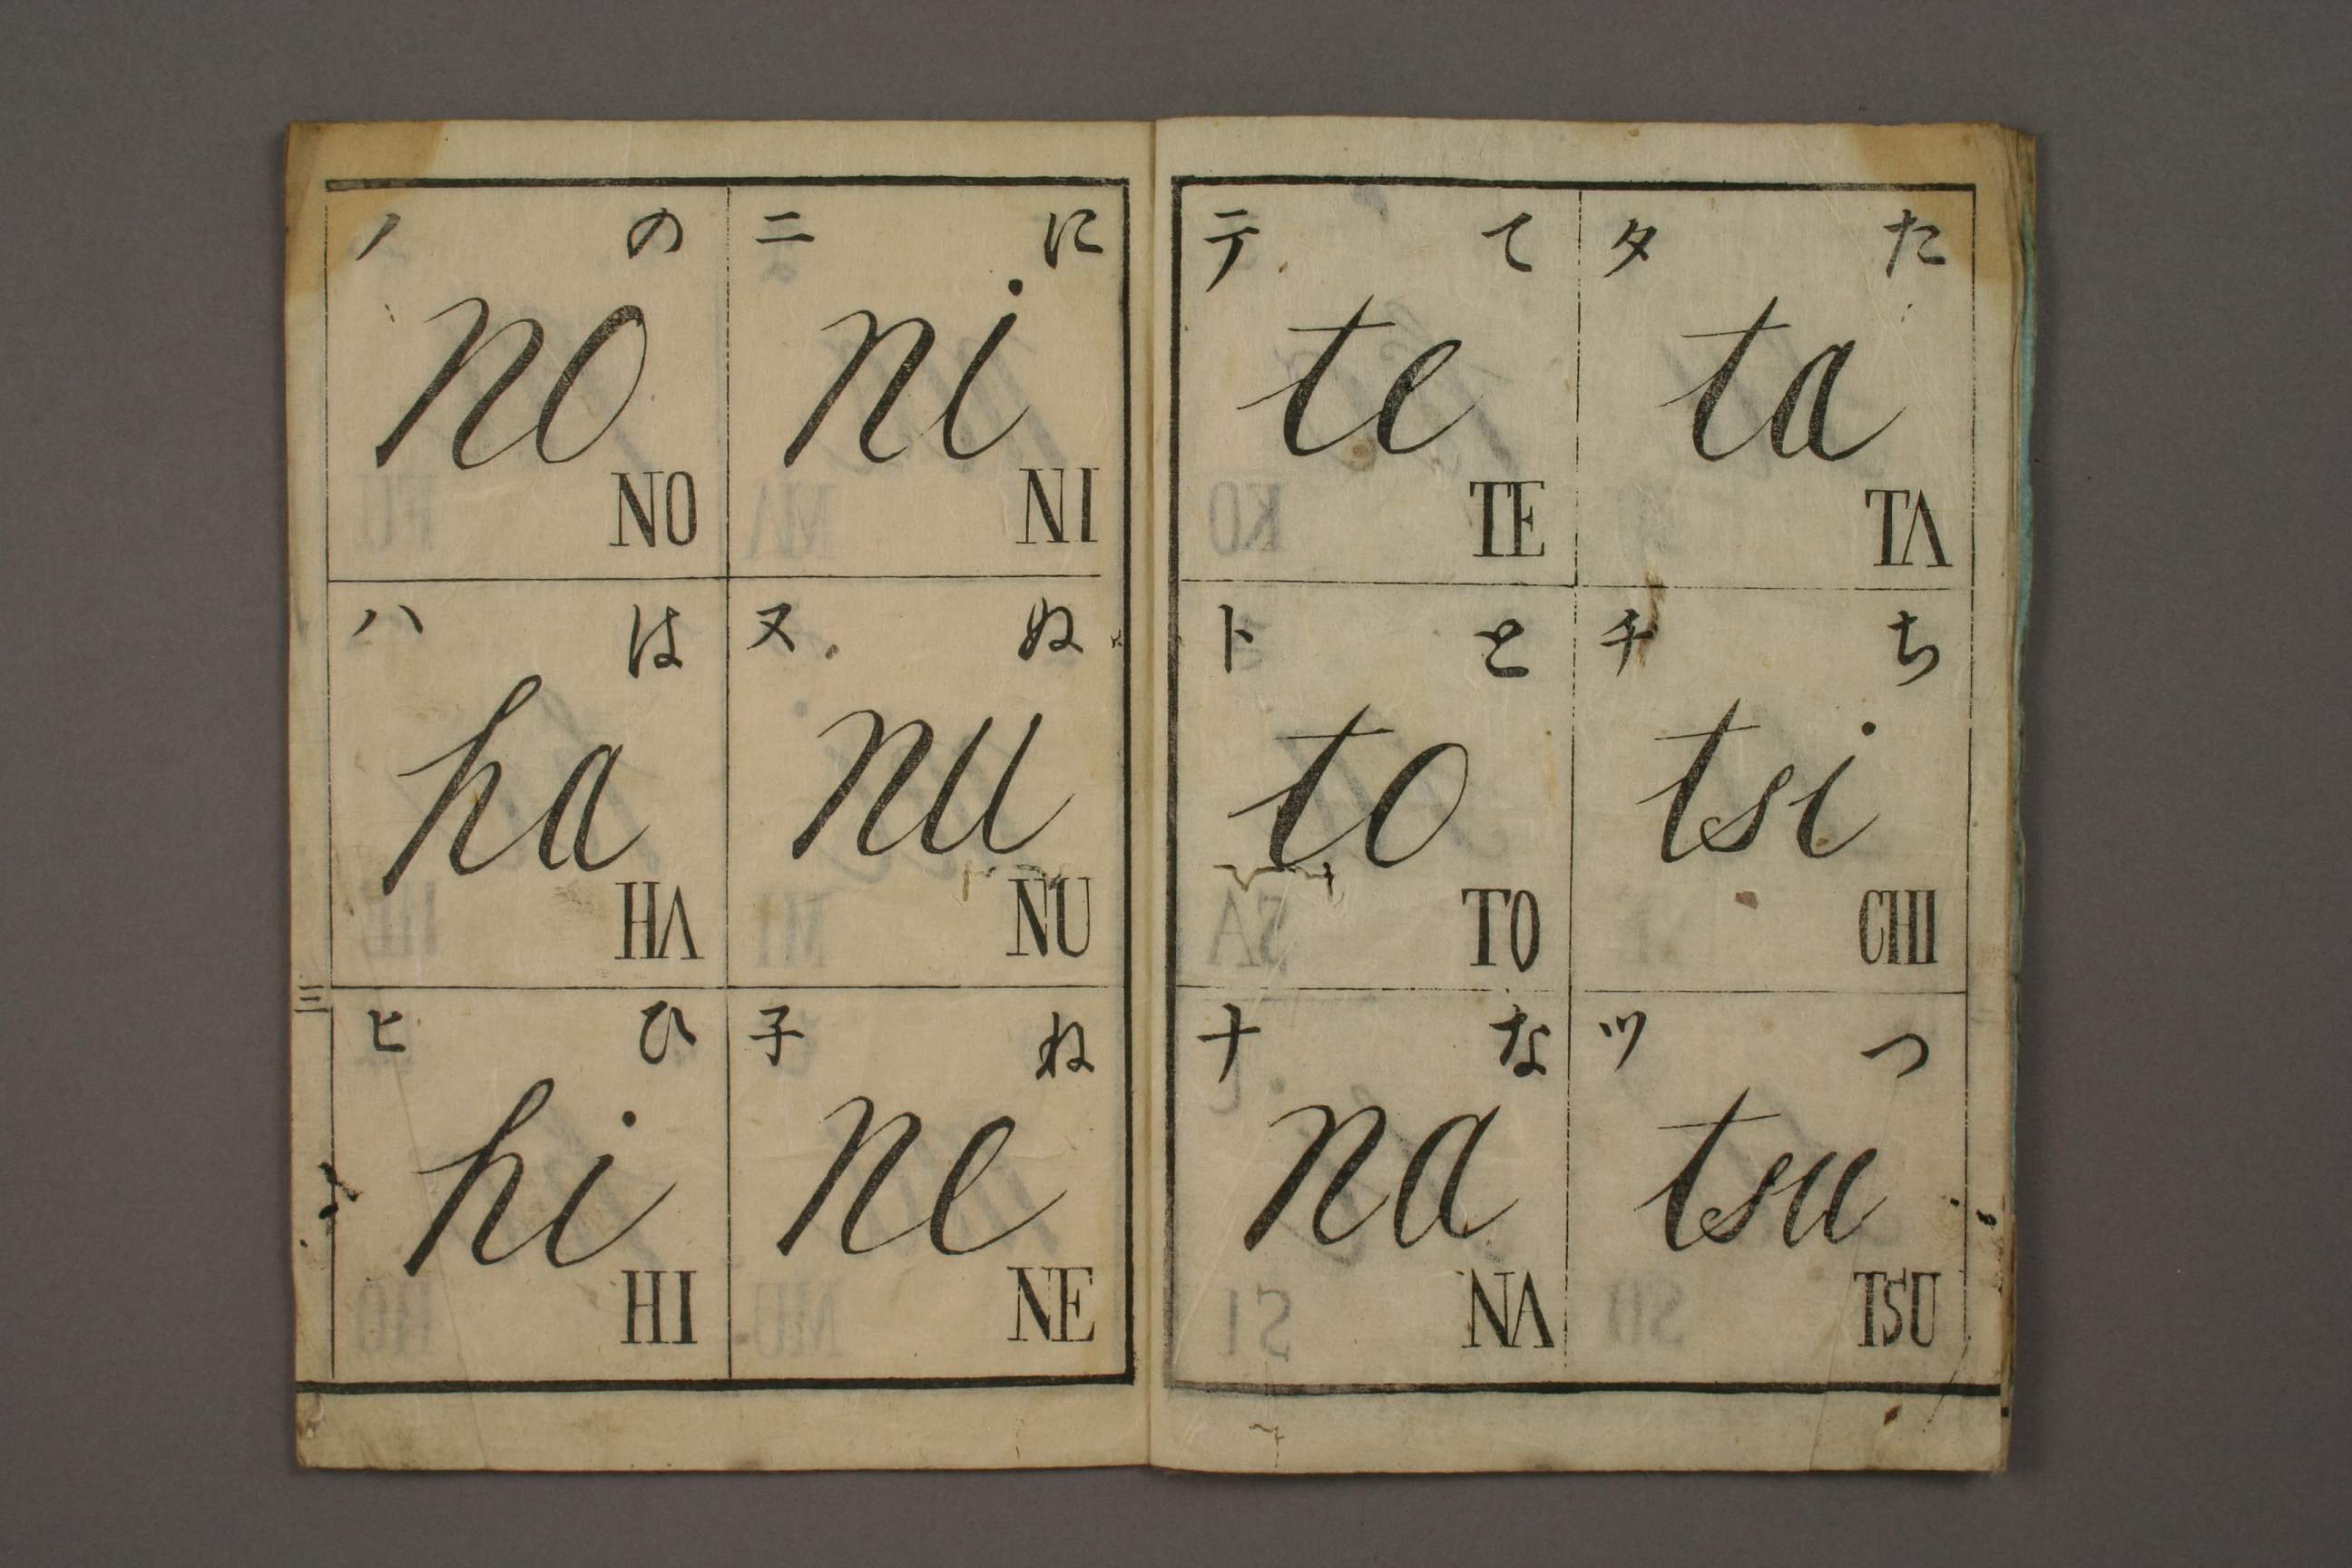 た タ
ta
TA
ち チ
tsi
CHI
つ ツ
tsu
TSU
て テ
te
TE
と ト
to
TO
な ナ
na
NA
に ニ
ni
NI
ぬ ヌ
nu
NU
ね 子
ne
NE
の ノ
no
NO
は ハ
ha
HA
ひ ヒ
hi
HI
三